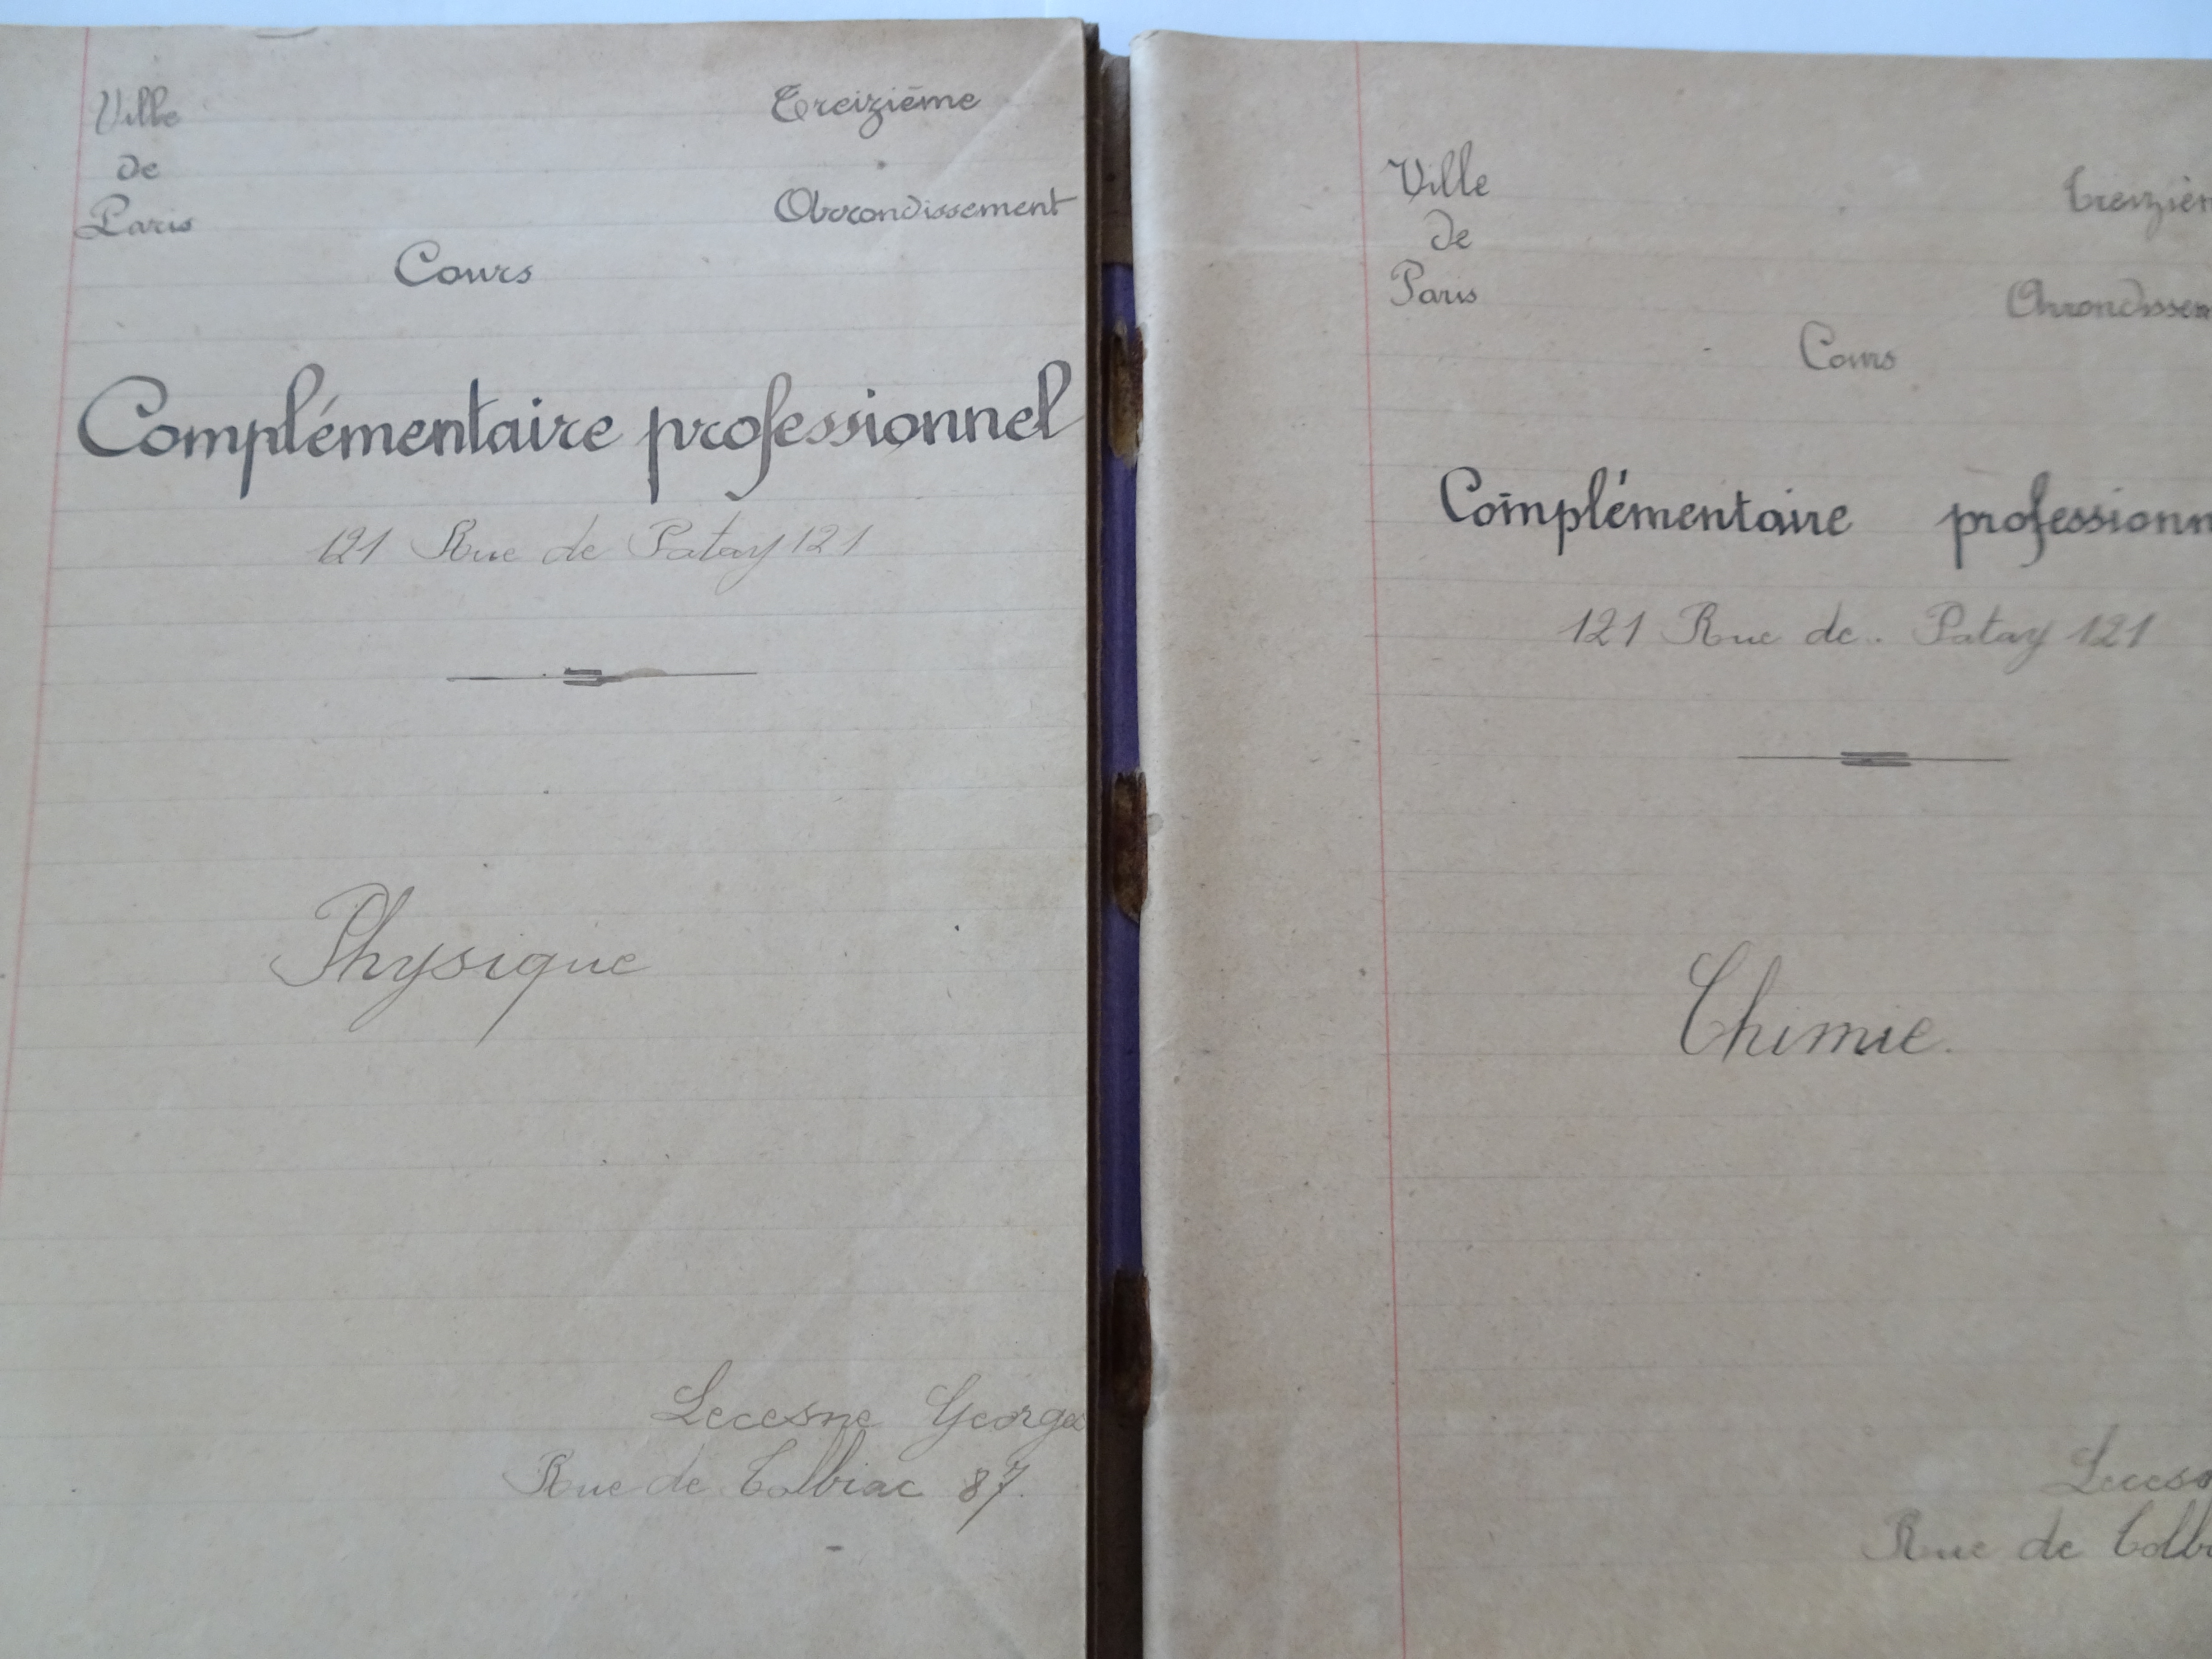 Ville Treizième
de
Paris Arrondissement
Cours
Complémentaire professionnel
121 Rue de Patay 121
Physique
Lecesne Georges
Rue de Tolbiac 87.
Ville Treizièm
de
Paris Arrondissem
Cours
Complémentaire professionn
121 Rue de Patay 121
Chimie.
Lecesn
Rue de Tolbi